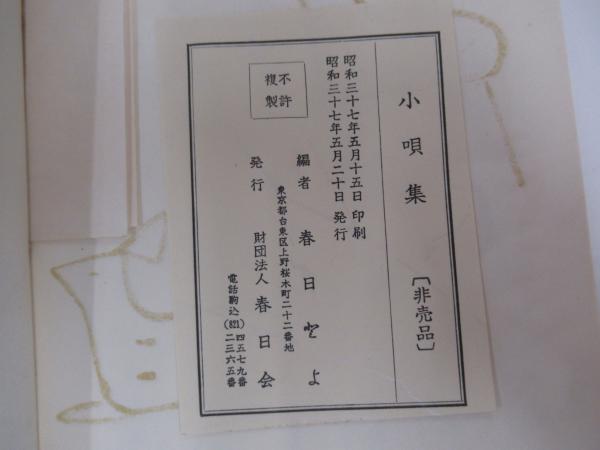 小唄集
〔非売品〕
昭和三十七年五月十五日 印刷
昭和三十七年五月二十日 発行
不許
複製
編者 春日とよ
東京都台東区上野桜木町二十二番地
発行 財団法人 春日会
電話駒込(821)四五七九番
二三六五番